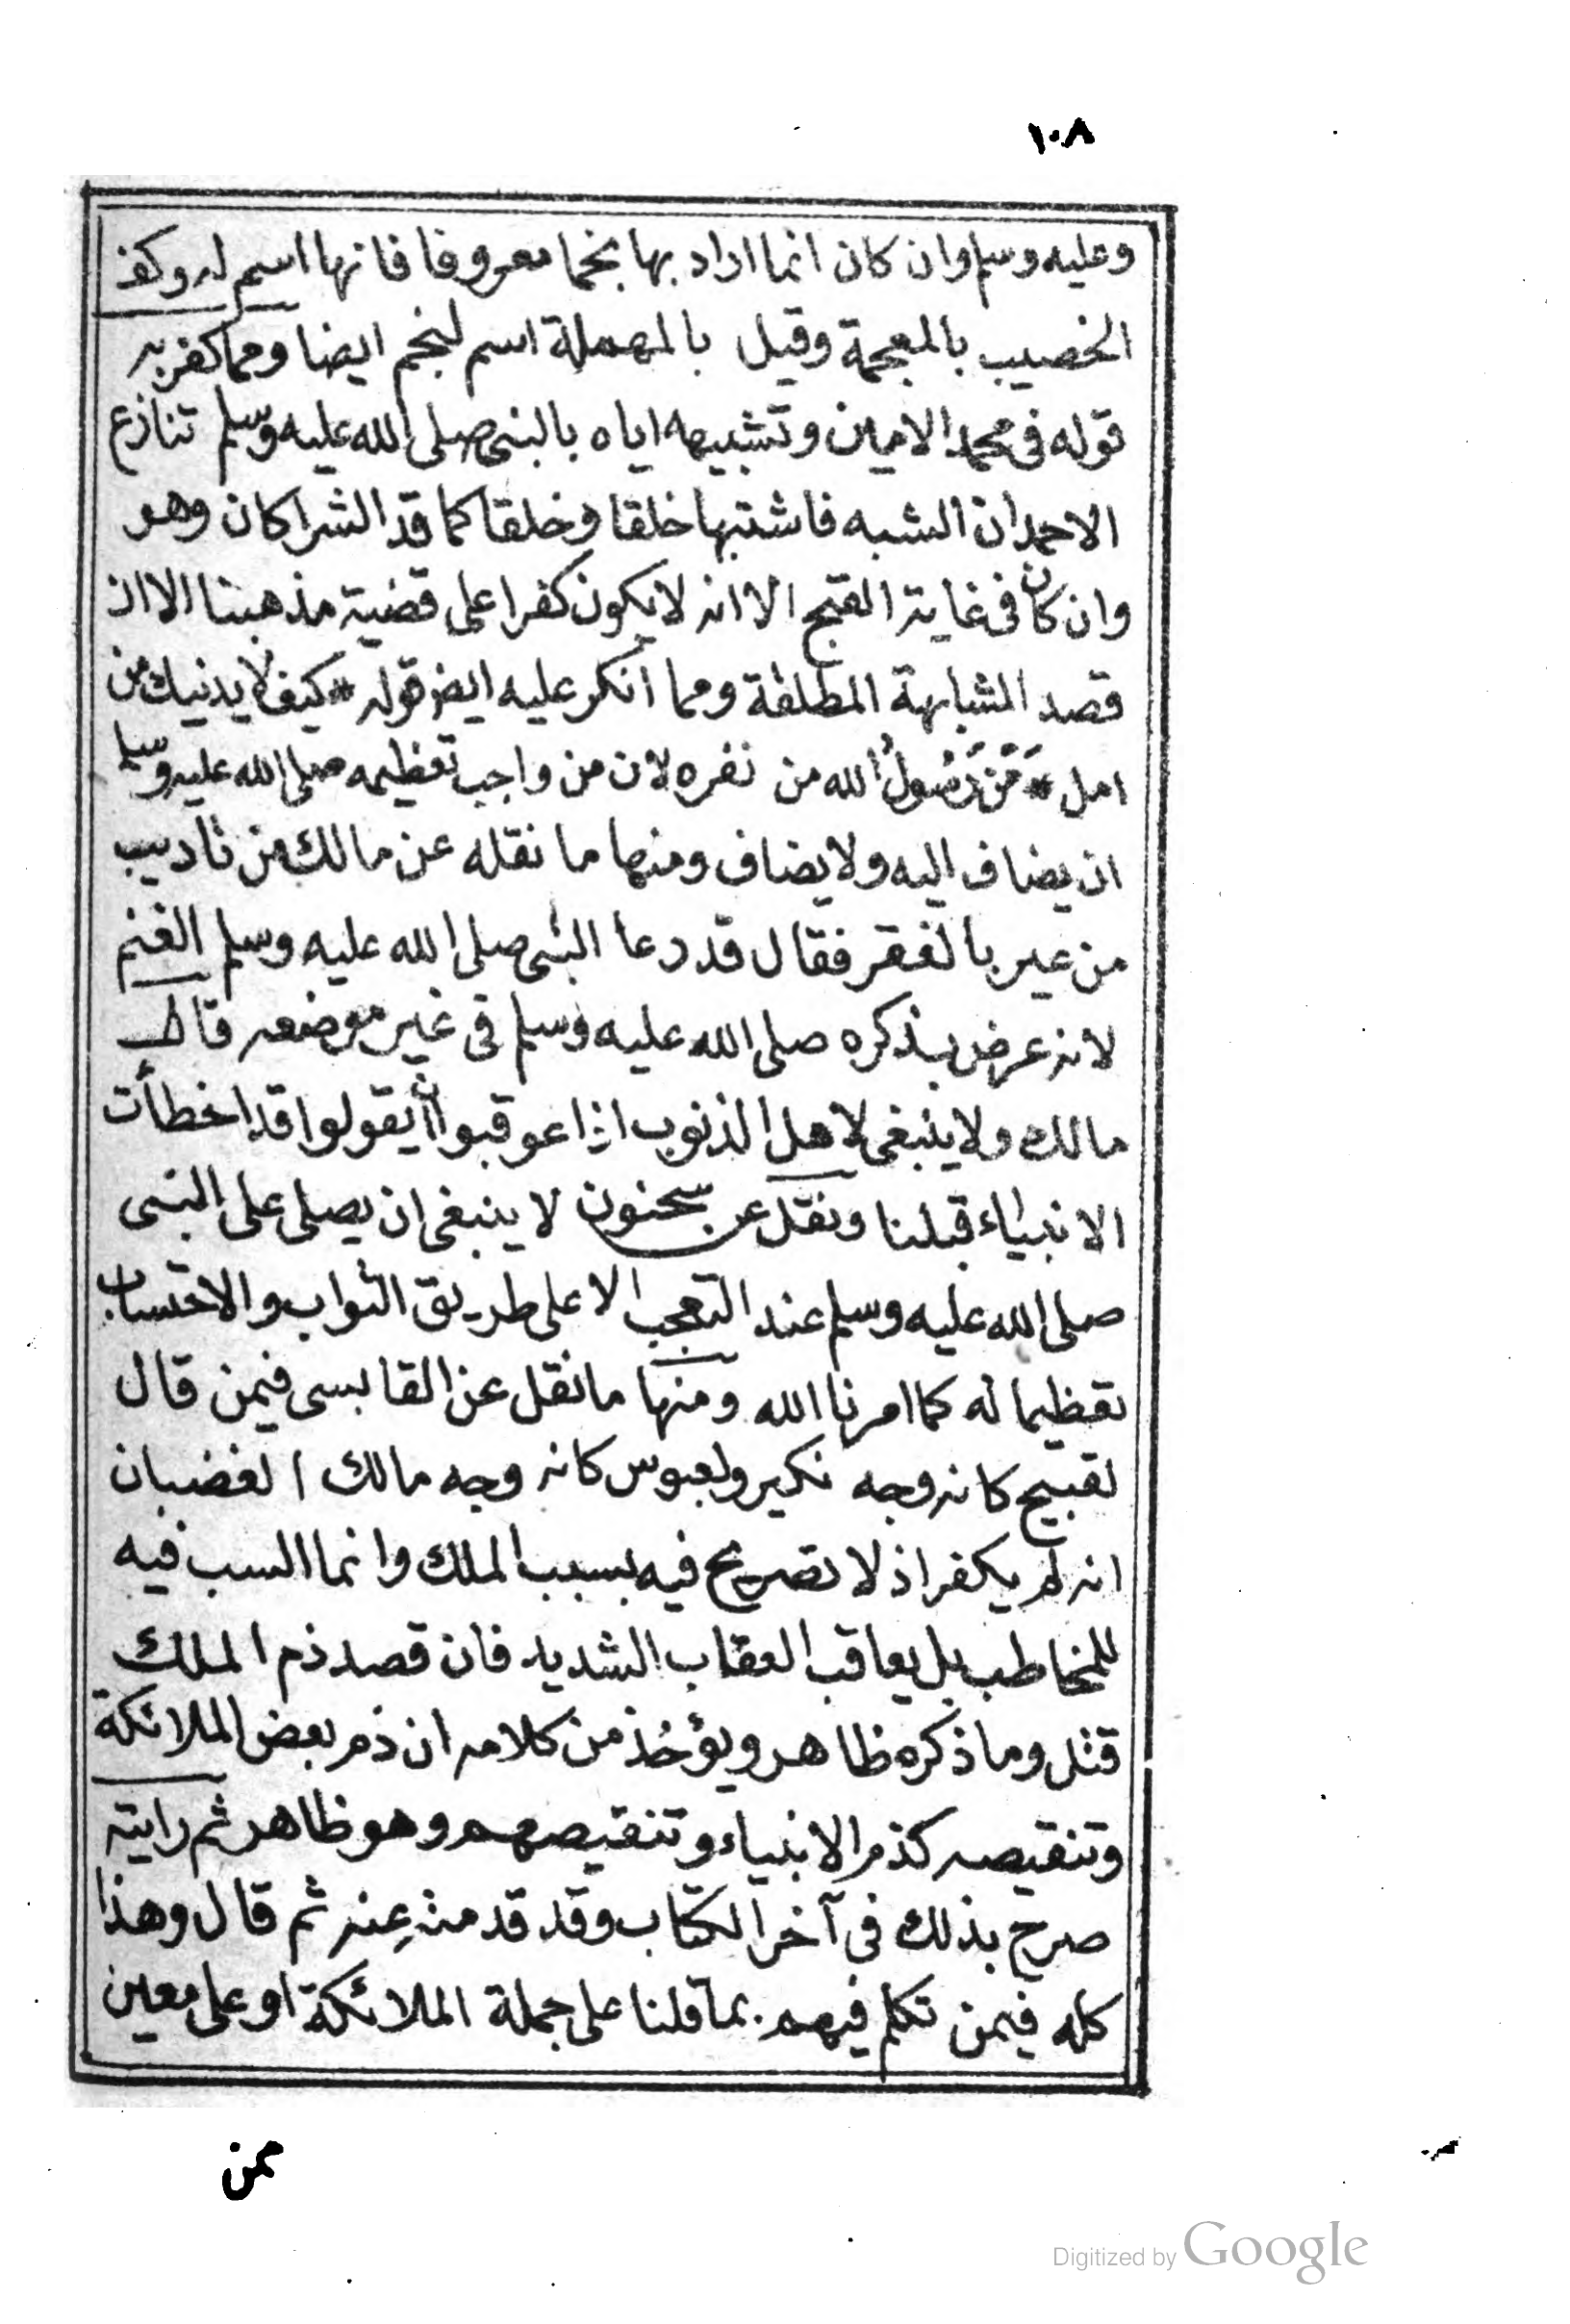 ١٠٨
وعليه وسلم وان كان انما اراد بها نجما معروفا فانها اسم له وكف
الخصيب بالمعجمة وقيل بالمهملة اسم لنجم ايضا ومما كفر به
قوله فى محمد الامين وتشبيهه اياه بالنبى صلى الله عليه وسلم تنازع
الاحمدان الشبه فاشتبها خلقا وخلقا كما قد الشراكان وهو
وان كان فى غاية القبح الا انه لا يكون كفرا على قضية مذهبنا الا ان
قصد المشابهة المطلقة ومما انكر عليه ايضا قوله * كيف لا يدنيك من
امل * مَنْ رَسُولُ الله من نفره لان من واجب تعظيمه صلى الله عليه وسلم
ان يضاف اليه ولا يضاف ومنها ما نقله عن مالك من تاديب
من عير بالفقر فقال قد رعا النبى صلى الله عليه وسلم الغنم
لانه عرض بذكره صلى الله عليه وسلم فى غير موضعه قال
مالك ولا ينبغى لاهل الذنوب اذا عوقبوا ان يقولوا قد اخطأت
الانبياء قبلنا ونقل عن سحنون لا ينبغى ان يصلى على النبى
صلى الله عليه وسلم عند التعجب الا على طريق الثواب والاحتساب
تعظيما له كما امرنا الله ومنها ما نقل عن القابسى فيمن قال
لقبيح كانه وجه نكير ولعبوس كانه وجه مالك الغضبان
انه لم يكفر اذ لا تصريح فيه بسبب الملك وانما السب فيه
للمخاطب بل يعاقب العقاب الشديد فان قصد ذم الملك
قتل وما ذكره ظاهر ويؤخُذ من كلامه ان ذم بعض الملائكة
وتنقيصه كذم الانبياء وتنقيصهم وهو ظاهر ثم رايته
صرح بذلك فى آخر الكتاب وقد قدمته عنه ثم قال وهذا
كله فيمن تكلم فيهم بما قلنا على جملة الملائكة او على معين
ممن
Digitized by Google